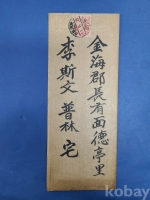 金海郡長有面德亭里
李斯文 普林 宅
kobay